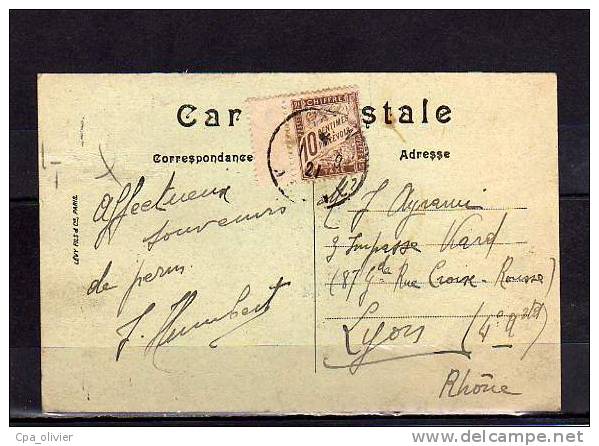 Carte Postale
Correspondance
Adresse
CHIFFRE
10 CENTIMES
A PERCEVOIR
21
LÉVY FILS & Cie, PARIS
Affectueux
souvenirs
de perm
J. Humbert
J Ayrami
3 Impasse Vard
(87 Gde Rue Croix-Rousse)
Lyon (4e
Rhône
Cpa_olivier
www.delcampe.net